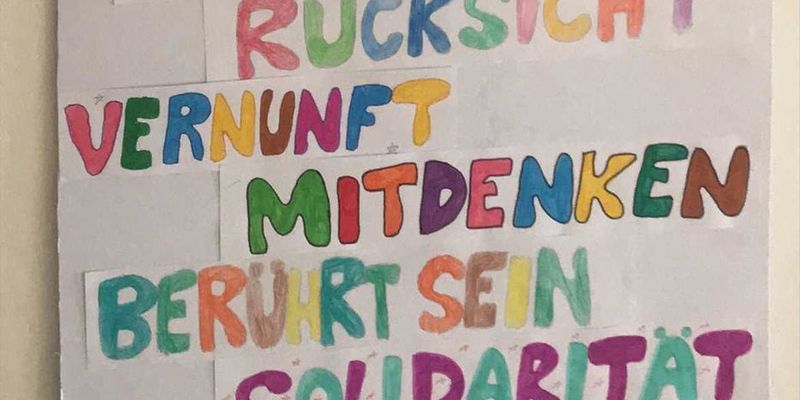 RÜCKSICHT
VERNUNFT
MITDENKEN
BERÜHRT SEIN
SOLIDARITÄT